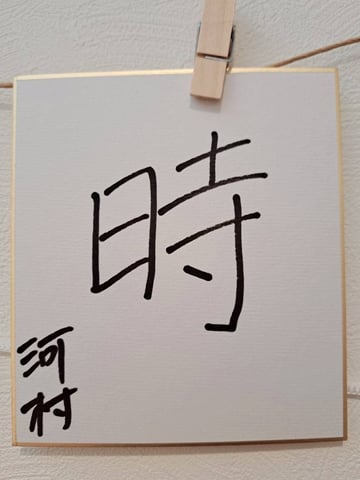 時
河村